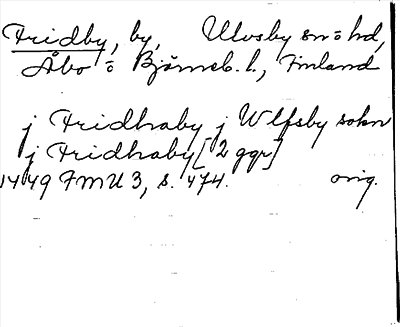 Fridby, by, Ulvsby sn o hd,
Åbo o Björneb. l., Finland
j Fridhraby j Wlfsby sokn
j Fridhaby [2 ggr]
1449 FMU 3, s. 474. orig.